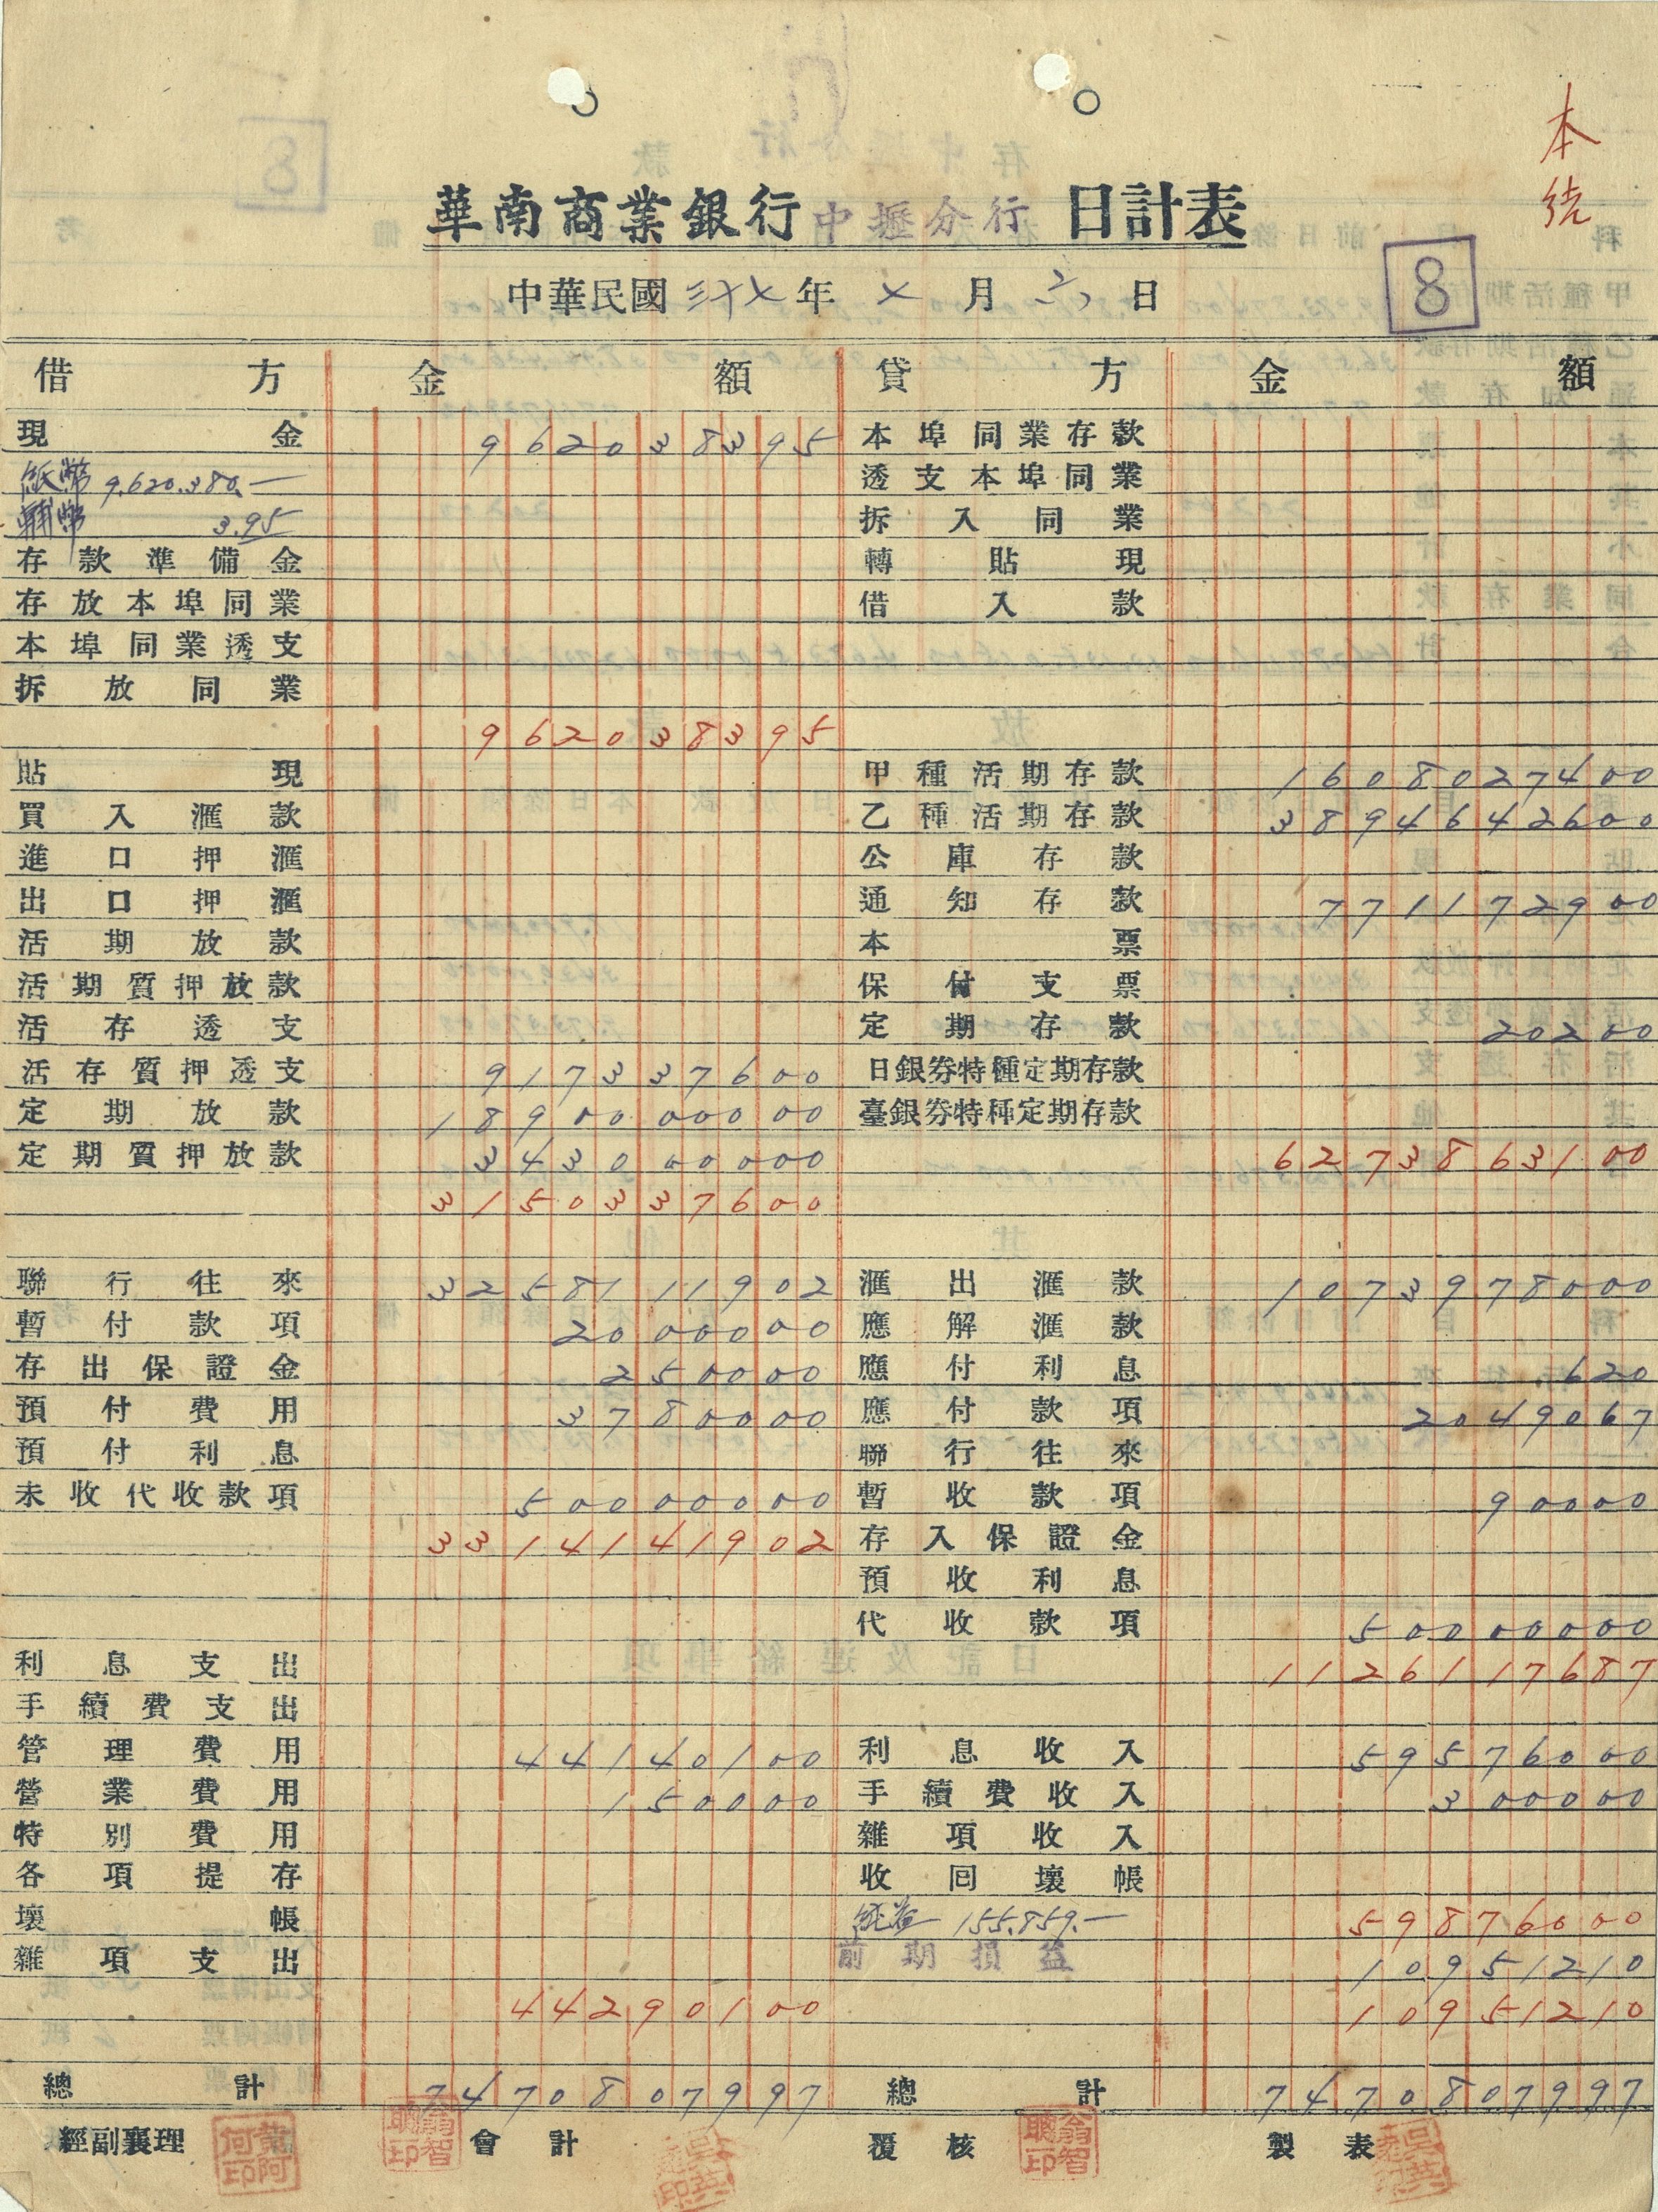 本
繞
華南商業銀行 中壢分行 日計表
中華民國 三十七 年 七 月 六 日
8
借方 金額 貸方 金額
現金 962038395 本埠同業存款
紙幣 9,620,380.— 透支本埠同業
輔幣 3.95 拆入同業
存款準備金 轉貼現
存放本埠同業 借入款
本埠同業透支
拆放同業
962038395
貼現 甲種活期存款 1608027400
買入滙款 乙種活期存款 3894642600
進口押滙 公庫存款
出口押滙 通知存款 7711172900
活期放款 本票
活期質押放款 保付支票
活存透支 定期存款 20200
活存質押透支 917337600 日銀券特種定期存款
定期放款 1890000000 臺銀券特種定期存款
定期質押放款 343000000 6273863100
3150337600
聯行往來 3258111902 滙出滙款 1073978000
暫付款項 2000000 應解滙款
存出保證金 250000 應付利息 620
預付費用 3780000 應付款項 2049067
預付利息 聯行往來
未收代收款項 50000000 暫收款項 90000
3314141902 存入保證金
預收利息
代收款項 50000000
利息支出 1126117687
手續費支出
管理費用 44140100 利息收入 59576000
營業費用 150000 手續費收入 300000
特別費用 雜項收入
各項提存 收回壞帳
壞帳 純益 155,859.— 59876000
雜項支出 前期損益 10951210
44290100 10951210
總計 7470807997 總計 7470807997
經副襄理 黃阿何印 翁智聰印 會計 覆核 翁智聰印 製表